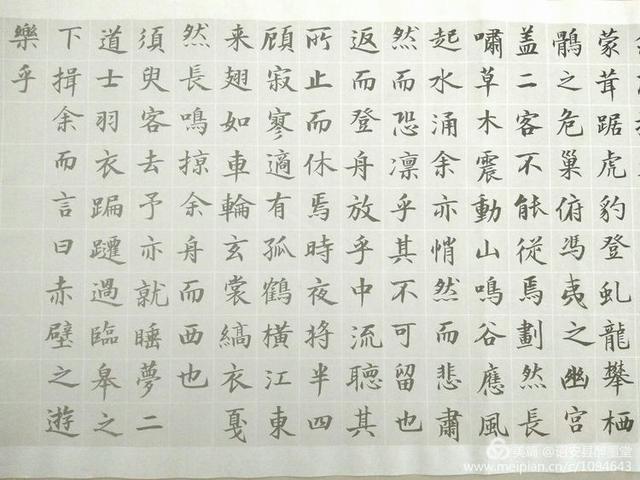 蒙茸踞虎豹登虬龍攀栖
鶻之危巢俯馮夷之幽宮
盖二客不能從焉劃然長
嘯草木震動山鳴谷應風
起水涌余亦悄然而悲肅
然而恐凛乎其不可留也
返而登舟放乎中流聽其
所止而休焉時夜将半四
顧寂寥適有孤鶴橫江東
来翅如車輪玄裳縞衣戛
然長鳴掠余舟而西也
須臾客去予亦就睡夢二
道士羽衣蹁躚過臨皋之
下揖余而言曰赤壁之遊
樂乎
美篇
www.meipian.cn/c/1084643